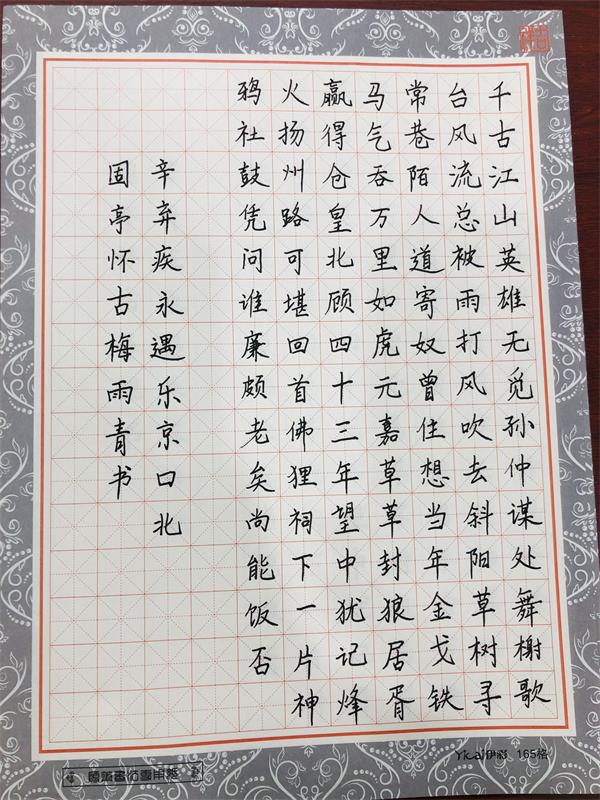 千古江山英雄无觅孙仲谋处舞榭歌
台风流总被雨打风吹去斜阳草树寻
常巷陌人道寄奴曾住想当年金戈铁
马气吞万里如虎元嘉草草封狼居胥
赢得仓皇北顾四十三年望中犹记烽
火扬州路可堪回首佛狸祠下一片神
鸦社鼓凭问谁廉颇老矣尚能饭否
辛弃疾永遇乐京口北
固亭怀古梅雨青书
Yicai伊彩 165格